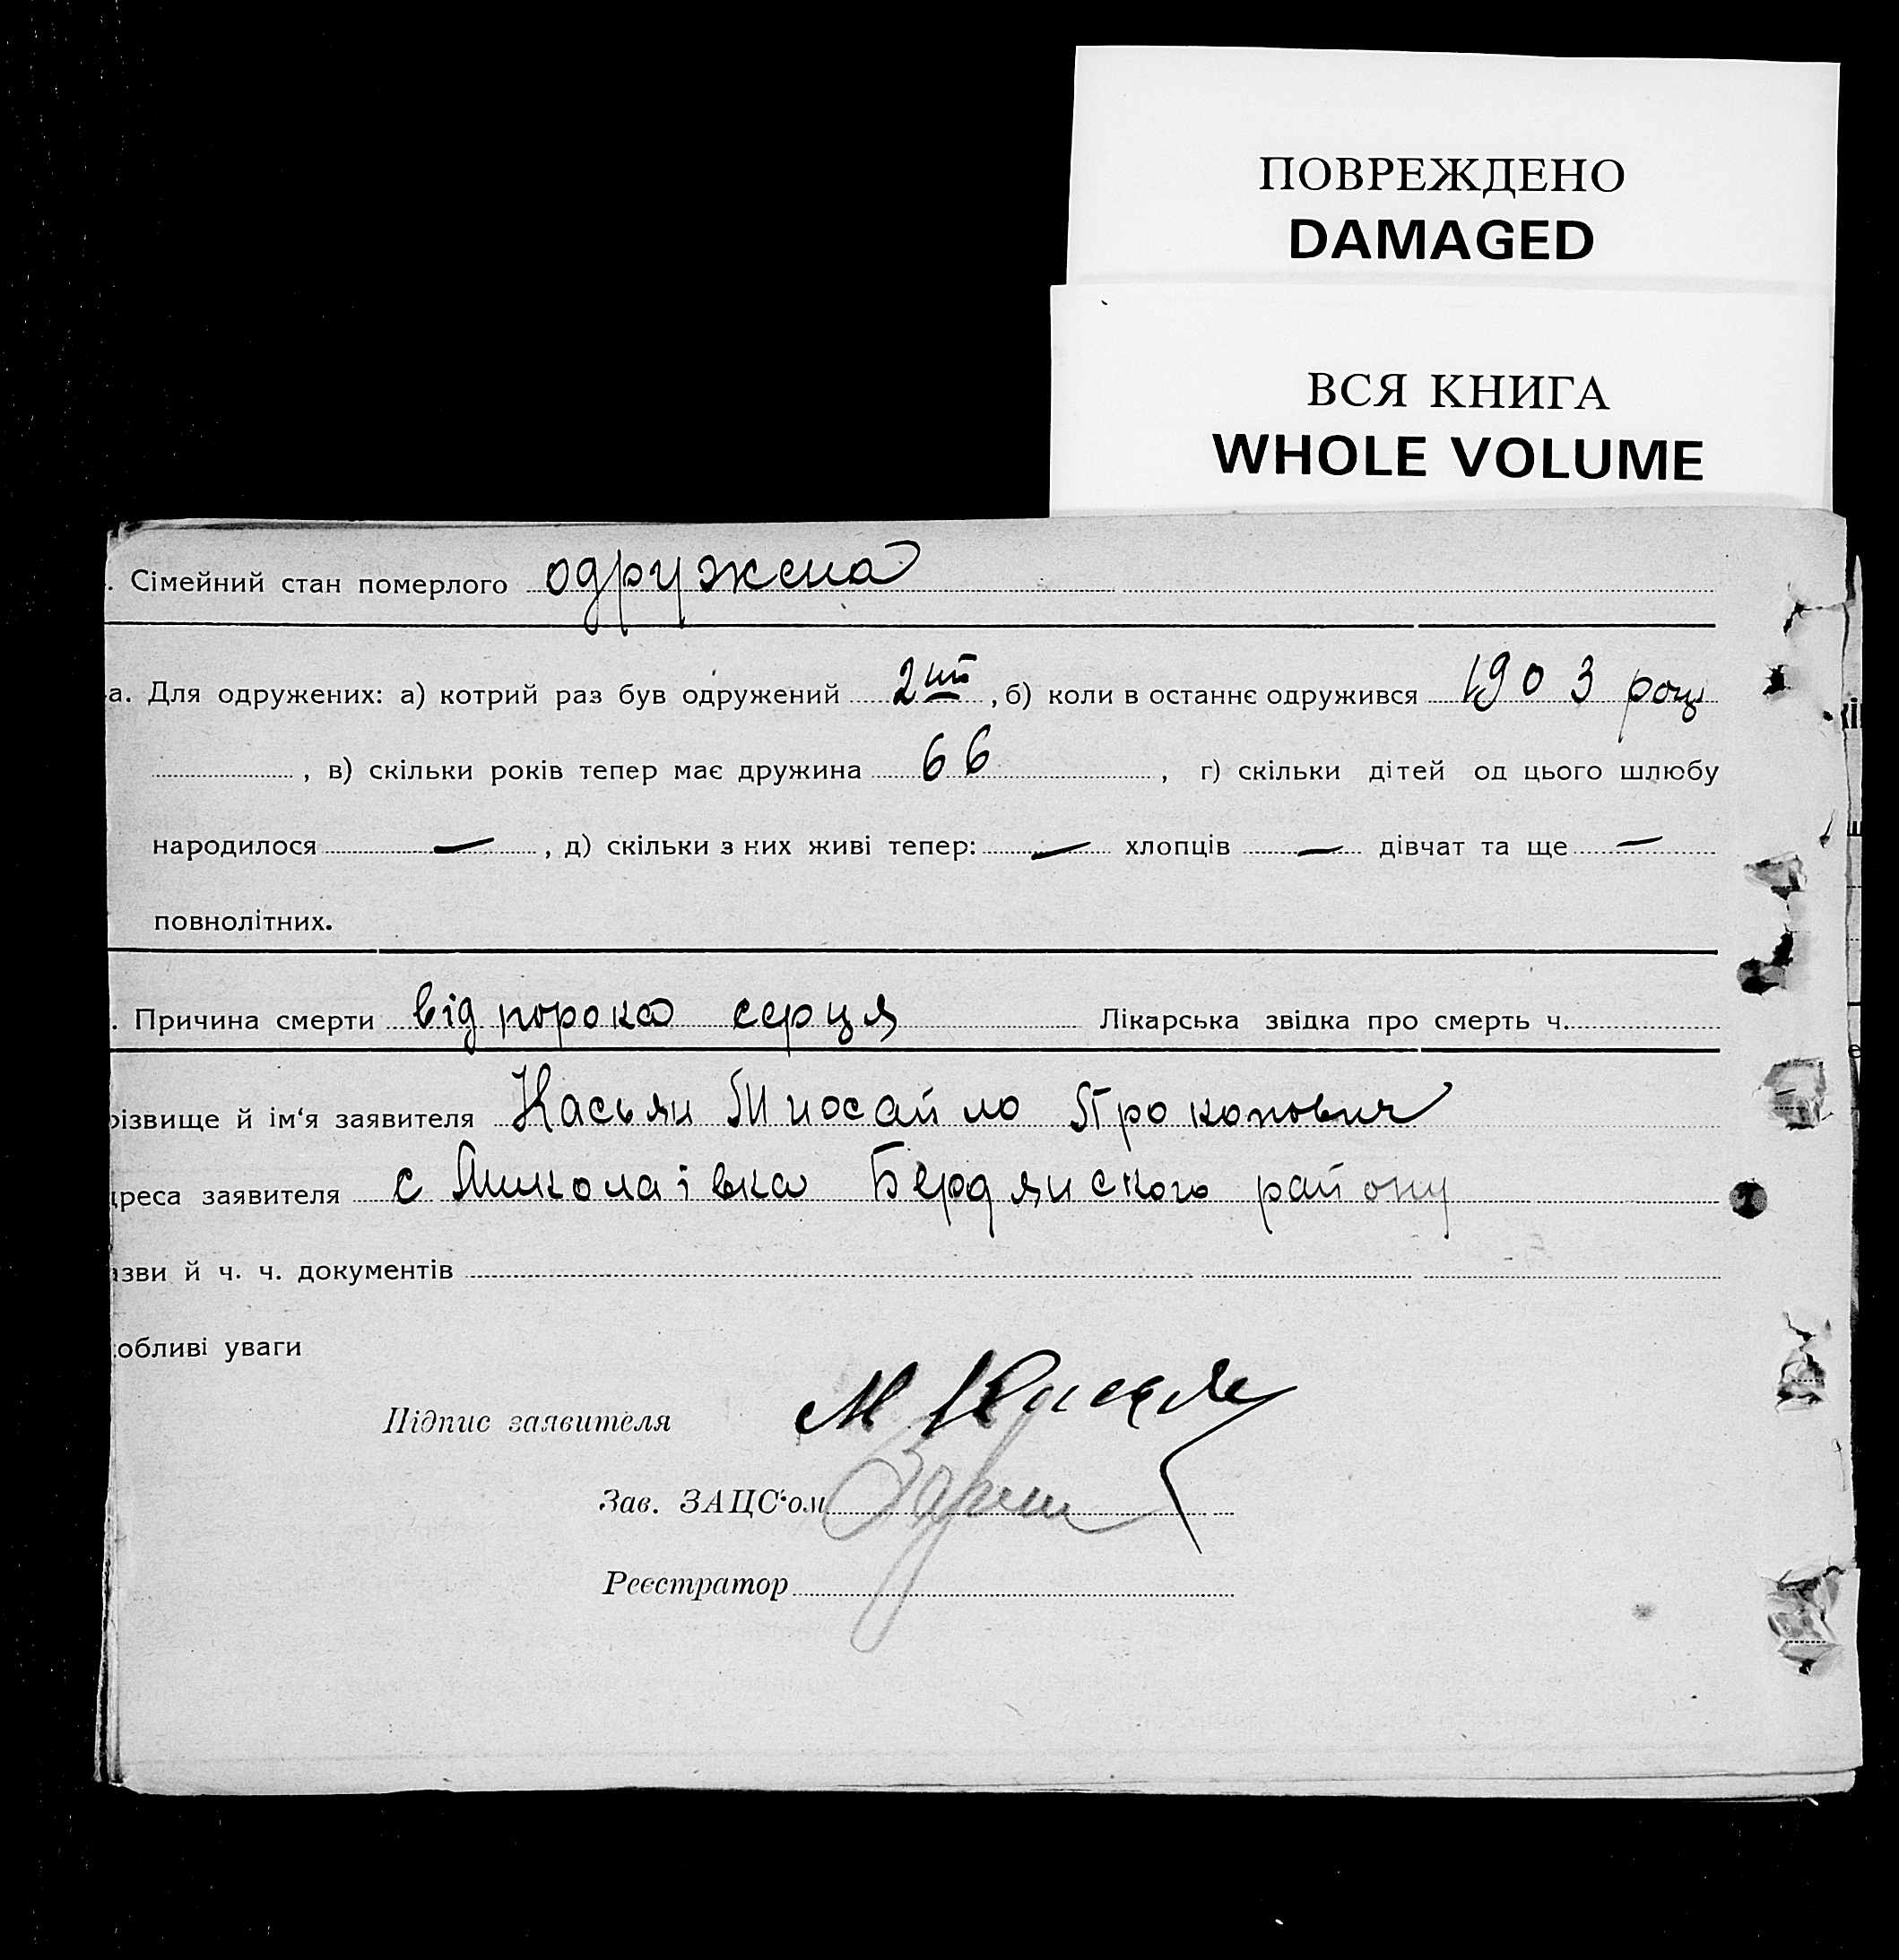 ПОВРЕЖДЕНО
DAMAGED
ВСЯ КНИГА
WHOLE VOLUME
. Сімейний стан померлого одружена
а. Для одружених: а) котрий раз був одружений 2ий, б) коли в останнє одружився 1903 році
, в) скільки років тепер має дружина 66, г) скільки дітей од цього шлюбу
народилося —, д) скільки з них живі тепер: — хлопців — дівчат та ще —
повнолітних.
. Причина смерти від порока серця Лікарська звідка про смерть ч.
різвище й ім'я заявителя Касьян Михайло Прокопович
дреса заявителя с Миколаївка Бердянского району
азви й ч. ч. документів
собливі уваги
Підпис заявителя М
Зав. ЗАЦС'ом
Реєстратор